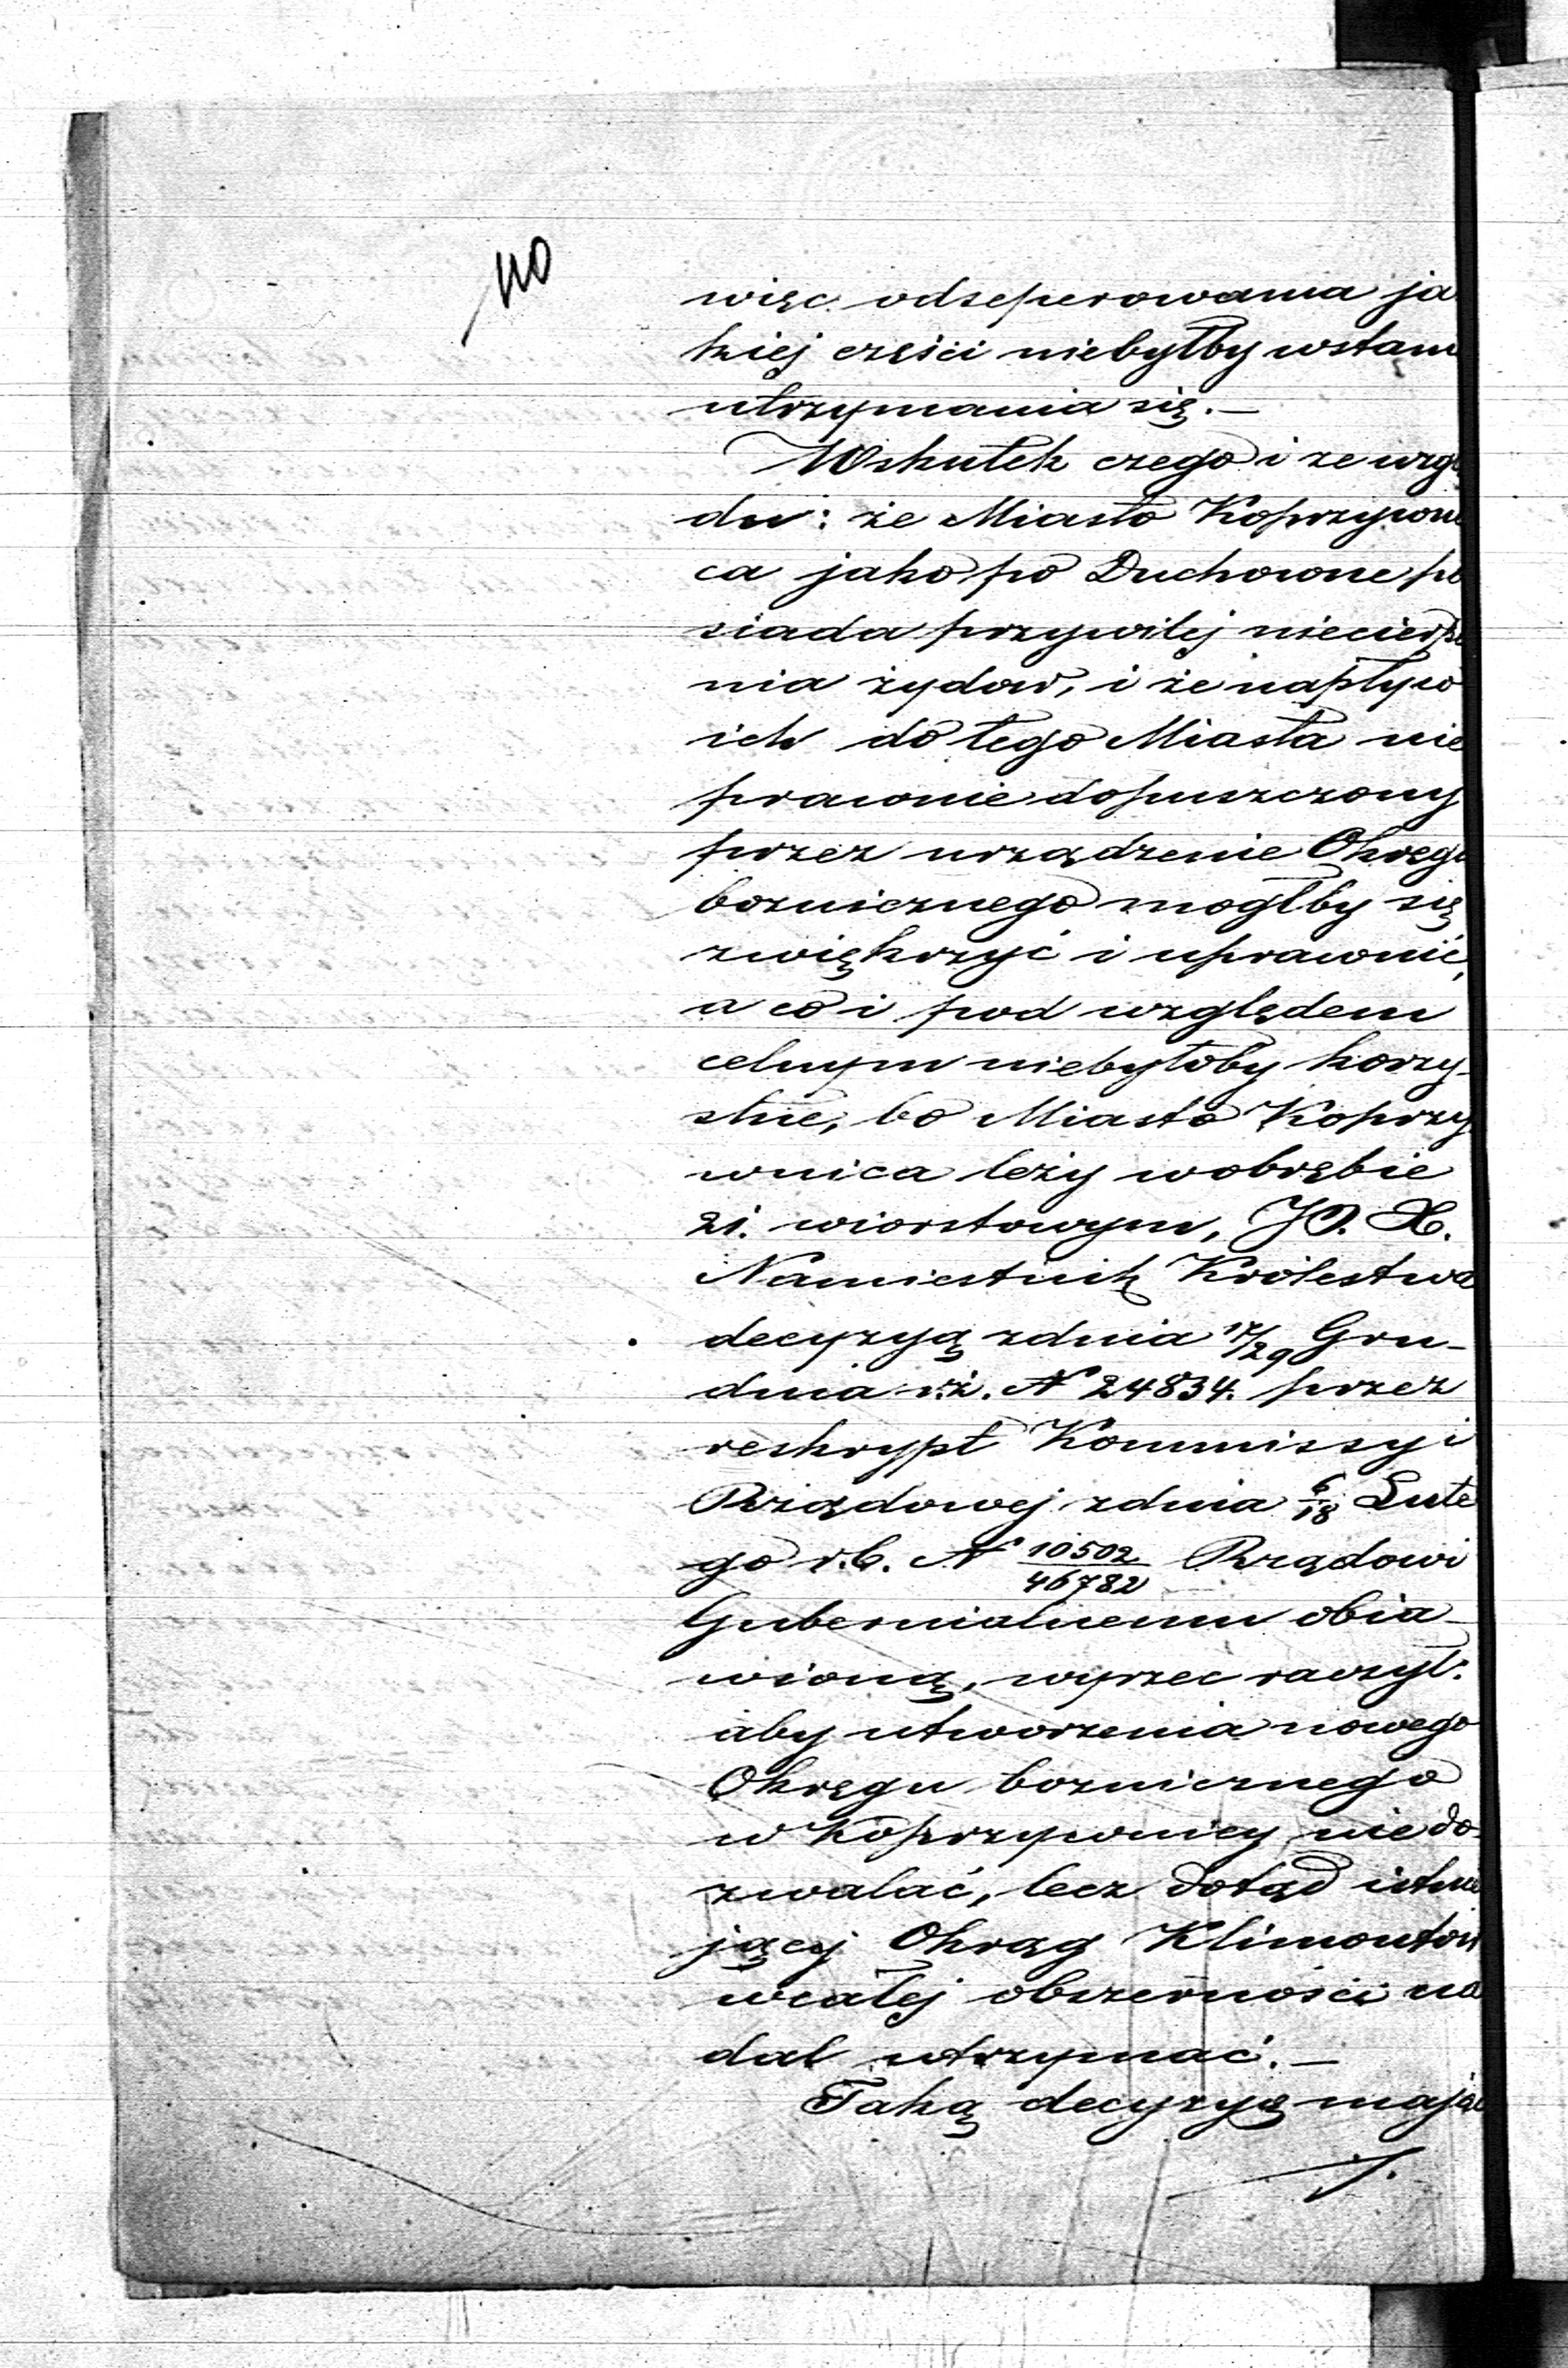 110
więc odseperowania ja
kiej części niebyłby wstani
utrzymania się.—
Wskutek czego i ze wzglę
du: że Miasto Koprzywni
ca jako po Duchowne po
siada przywilej niecierpie
nia żydow, i że napływ
ich do tego Miasta nie
prawnie dopuszczony
przez urządzenie Okręgu
boznicznego mogłby się
zwiękrzyć i uprawnić,
a co i pod względem
celnym niebyłoby korzy-
stne, bo Miasto Koprzy
wnica leży wobrębie
21. wiorstowym, JO. X.
Namiestnik Królestwa
decyzyą zdnia 17/29 Gru-
dnia r.z. N 24834. przez
reskrypt Kommissyi
Rządowej zdnia 6/18 Lute
go r.b. N 10502/46782 Rządowi
Gubernialnemu obia-
wioną, wyrzec raczył:
aby utworzenia nowego
Okręgu boznicznego
w Koprzywnicy nie do-
zwalać, lecz dotąd istnie
jący Okrąg Klimontow
wcałej obszerności na
dal utrzymać.—
Taką decyzyą mając
./.